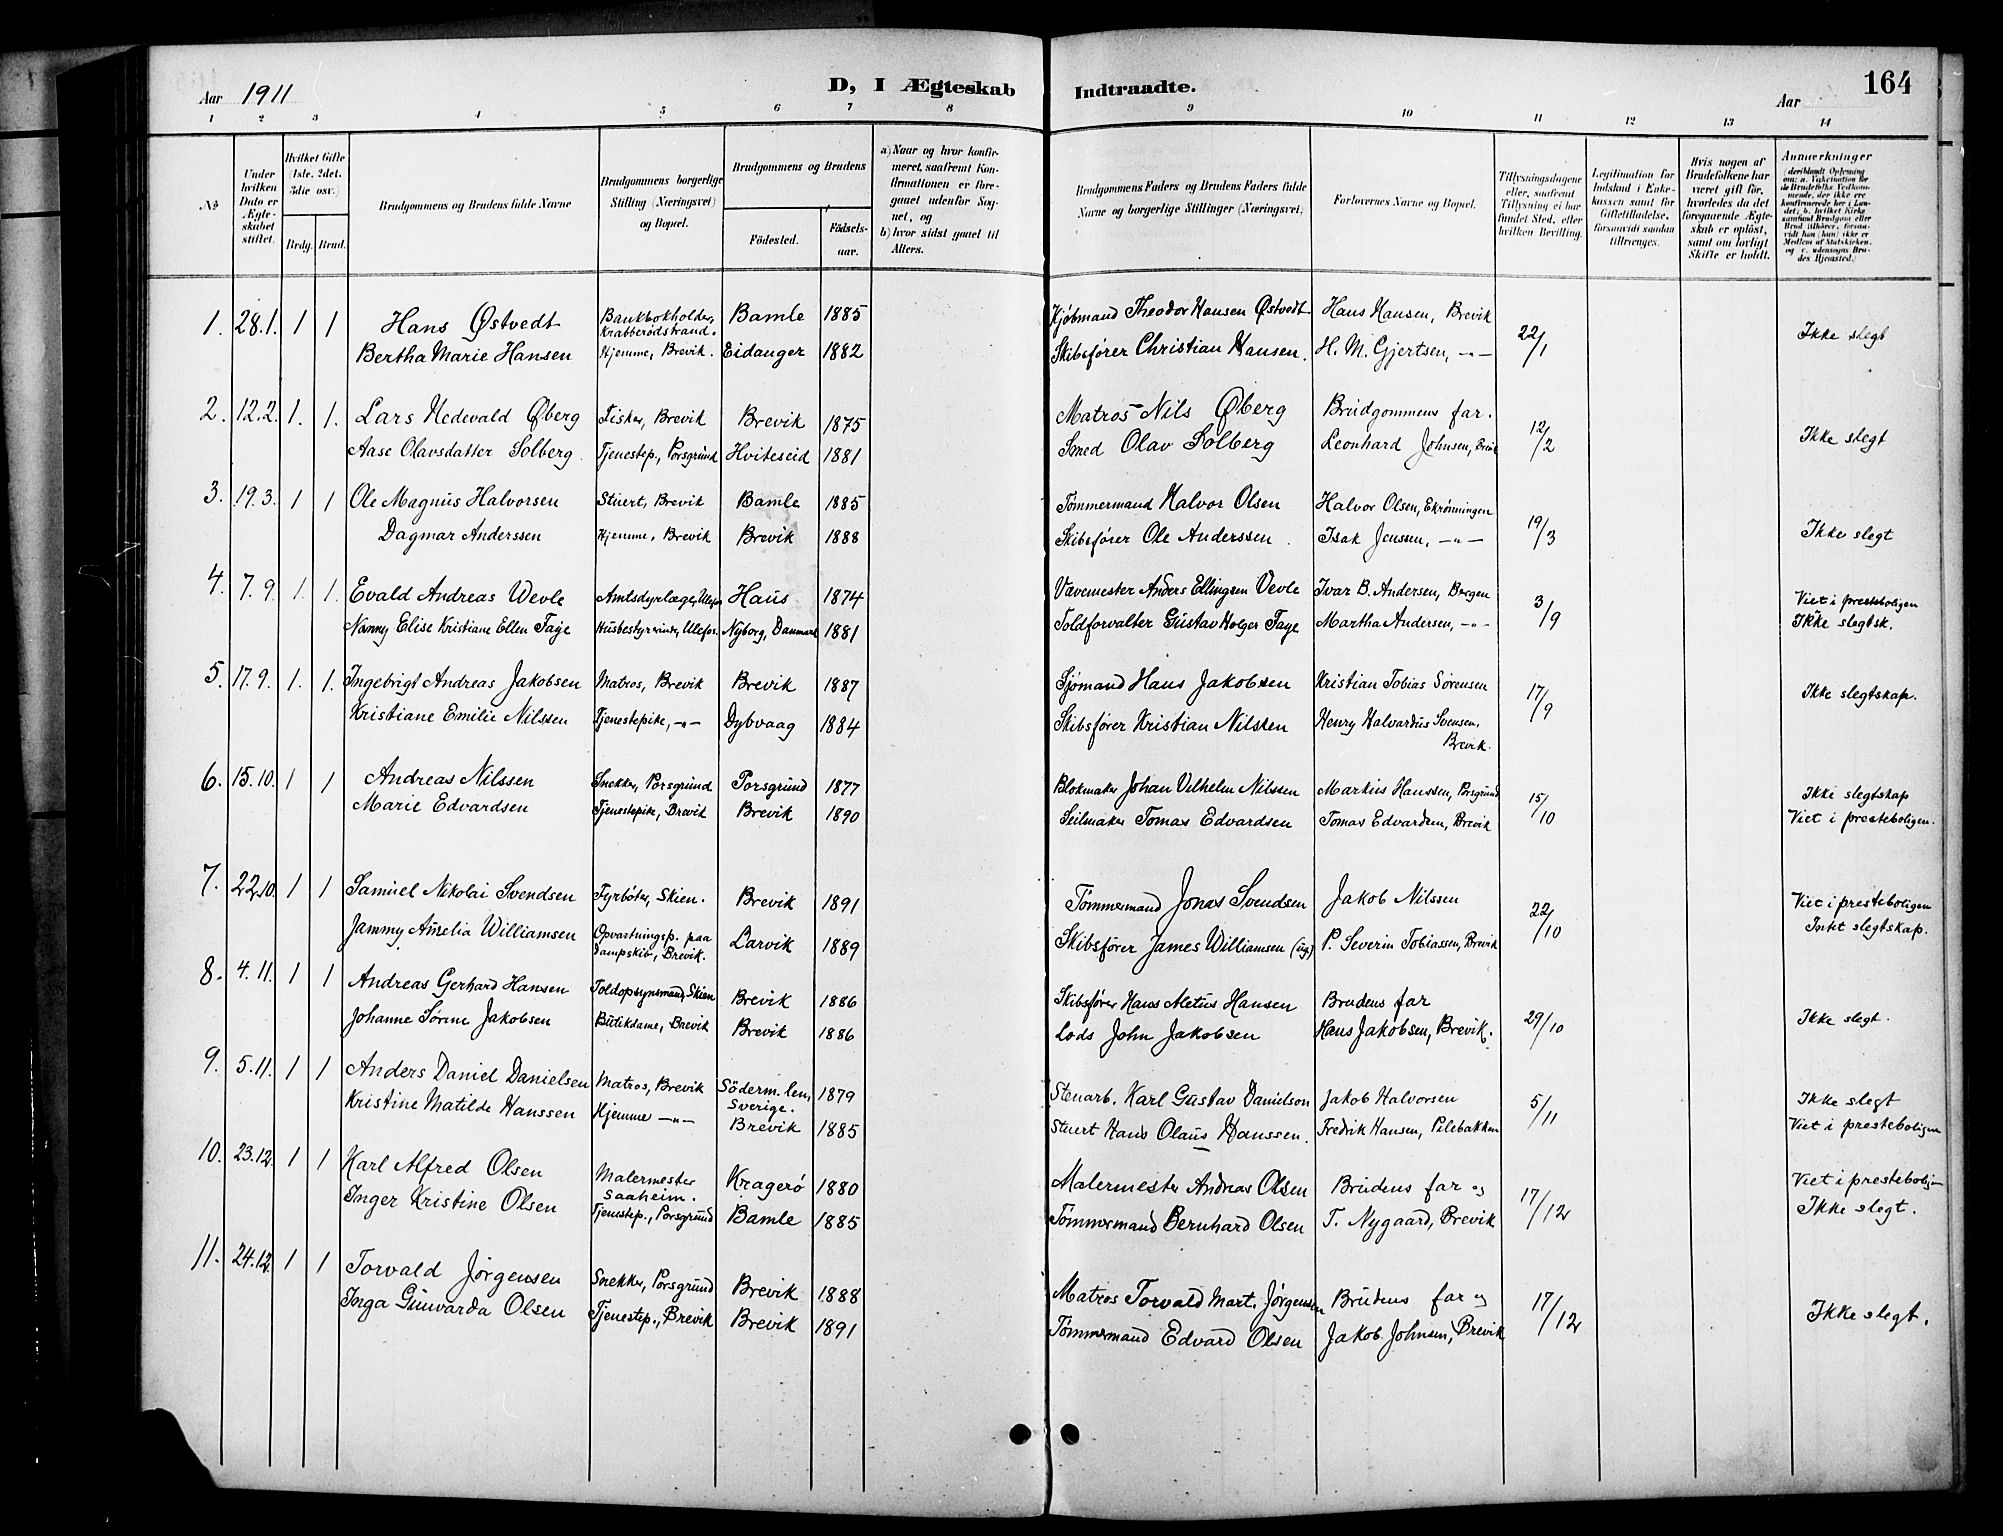 Aar 1911
D, I Ægteskab Indtraadte.
Aar 164
1 2 3 4 5 6 7 8 9 10 11 12 13 14
No
Under hvilken Dato er Ægteskabet stiftet.
Hvilket Gifte (1ste. 2det. 3die osv.)
Brdg. Brud.
Brudgommens og Brudens fulde Navne
Brudgommens borgerlige Stilling (Næringsvei) og Bopæl.
Brudgommens og Brudens
Fødested.
Fødselsaar.
a) Naar og hvor konfirmeret, saafremt Konfirmationen er foregaaet udenfor Sognet, og
b) hvor sidst gaaet til Alters.
Brudgommens Faders og Brudens Faders fulde Navne og borgerlige Stillinger (Næringsvei)
Forlovernes Navne og Bopæl.
Tillysningsdagene eller, saafremt Tillysning ei har fundet Sted, efter hvilken Bevilling.
Legitimation for Indskud i Enkekassen samt for Giftetilladelse, forsaavidt saadan tiltrænges.
Hvis nogen af Brudefolkene har været gift før, hvorledes da det foregaaende Ægteskab er opløst, samt om lovligt Skifte er holdt.
Anmerkninger
1. 28.1. 1 1 Hans Østvedt Bankbokholder, Krabberødstrand. Bamle 1885 Kjøbmand Theodor Hansen Østvedt Hans Hansen, Brevik 22/1 Ikke slegt
Bertha Marie Hansen Hjemme, Brevik. Eidanger 1882 Skibsfører Christian Hansen. H. M. Gjertsen, -"-
2. 12.2. 1. 1. Lars Hedevald Øberg Fisker, Brevik Brevik 1875 Matros Nils Øberg Brudgommens far. 12/2 Ikke slegt
Aase Olavsdatter Solberg Tjenestep., Porsgrund Hviteseid 1881 Smed Olav Solberg Leonhard Johnsen, Brevik
3. 19.3. 1 1 Ole Magnus Halvorsen Stuert, Brevik Bamle 1885 Tømmermand Halvor Olsen Halvor Olsen, Ekrønningen 19/3 Ikke slegt
Dagmar Anderssen Hjemme, Brevik Brevik 1888 Skibsfører Ole Anderssen Isak Jenssen, -"-
4. 7.9. 1. 1. Evald Andreas Wevle Amtsdyrlæge, Ulefos Haus 1874 Vævemester Anders Ellingsen Vevle Ivar B. Andersen, Bergen 3/9 Viet i presteboligen
Nanny Elise Kristiane Ellen Faye Husbestyrerinde, Ulefos. Nyborg, Danmark 1881 Toldforvalter Gustav Holger Faye Martha Andersen, -"- Ikke slegtsk.
5. 17.9. 1. 1. Ingebrigt Andreas Jakobsen Matros, Brevik Brevik 1887 Sjømand Hans Jakobsen Kristian Tobias Sørensen 17/9 Ikke slegtskap.
Kristiane Emilie Nilssen Tjenestepike, -"- Dybvaag 1884 Skibsfører Kristian Nilssen Henry Halvardus Svensen, Brevik.
6. 15.10. 1 1 Andreas Nilssen Snekker, Porsgrund Porsgrund 1877 Blokmaker Johan Vilhelm Nilssen Markus Hanssen, Porsgrund 15/10 Ikke slegtskap
Marie Edvardsen Tjenestepike, Brevik Brevik 1890 Seilmaker Tomas Edvardsen Tomas Edvardsen, Brevik Viet i presteboligen.
7. 22.10. 1 1 Samuel Nikolai Svendsen Fyrbøter, Skien. Brevik 1891 Tømmermand Jonas Svendsen Jakob Nilssen 22/10 Viet i presteboligen
Jammy Amelia Williamsen Opvartningsp. paa Dampskib, Brevik. Larvik 1889 Skibsfører James Williamsen (ug.) P. Severin Tobiassen, Brevik Intet slegtskap.
8. 4.11. 1 1 Andreas Gerhard Hansen Toldopsynsmand, Skien Brevik 1886 Skibsfører Hans Aletus Hansen Brudens far 29/10 Ikke slegt.
Johanne Sørine Jakobsen Butikdame, Brevik Brevik 1886 Lods John Jakobsen Hans Jakobsen, Brevik.
9. 5.11. 1 1 Anders Daniel Danielsen Matros, Brevik Söderm. len, Sverige. 1879 Stenarb. Karl Gustav Danielson Jakob Halvorsen 5/11 Ikke slegt
Kristine Matilde Hanssen Hjemme -"- Brevik 1885 Stuert Hans Olaus Hanssen. Fredrik Hansen, Pilebakken Viet i presteboligen
10. 23.12. 1 1 Karl Alfred Olsen Malermester Saaheim. Kragerø 1880 Malermester Andreas Olsen Brudens far og 17/12 Viet i presteboligen
Inger Kristine Olsen Tjenestep., Porsgrund Bamle 1885 Tømmermand Bernhard Olsen T. Nygaard, Brevik Ikke slegt.
11. 24.12. 1 1 Torvald Jørgensen Snekker, Porsgrund Brevik 1888 Matros Torvald Mart. Jørgensen Brudens far og 17/12 Ikke slegt.
Inga Gunvarda Olsen Tjenestep., Brevik Brevik 1891 Tømmermand Edvard Olsen Jakob Johnsen, Brevik